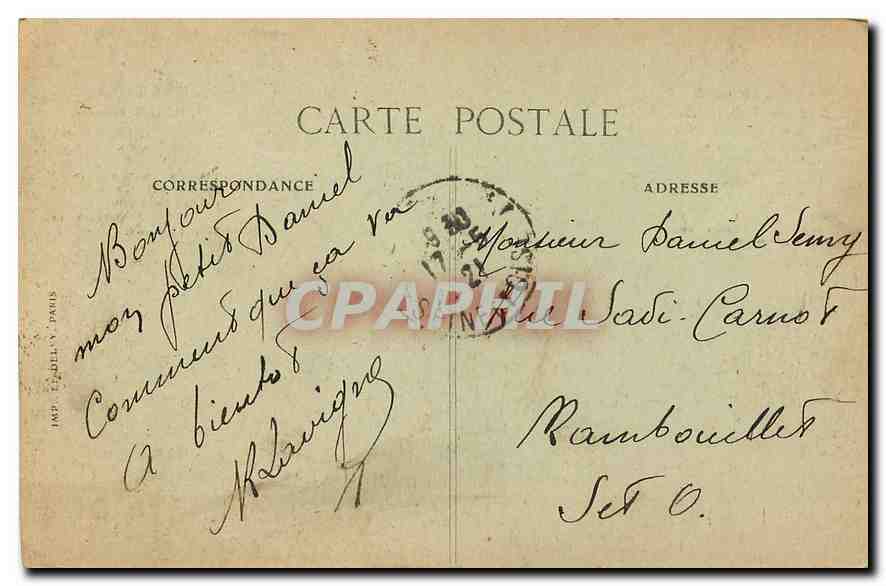 CARTE POSTALE
CORRESPONDANCE
Bonjour
mon petit Daniel
Comment que ça va
A bientot
Lavigne
ADRESSE
Monsieur Daniel
Rue Sadi-Carnot
Rambouillet
Set O.
8 30
17
21
SEINE-&-OISE
IMP. LE DELEY, PARIS
CPAPHIL